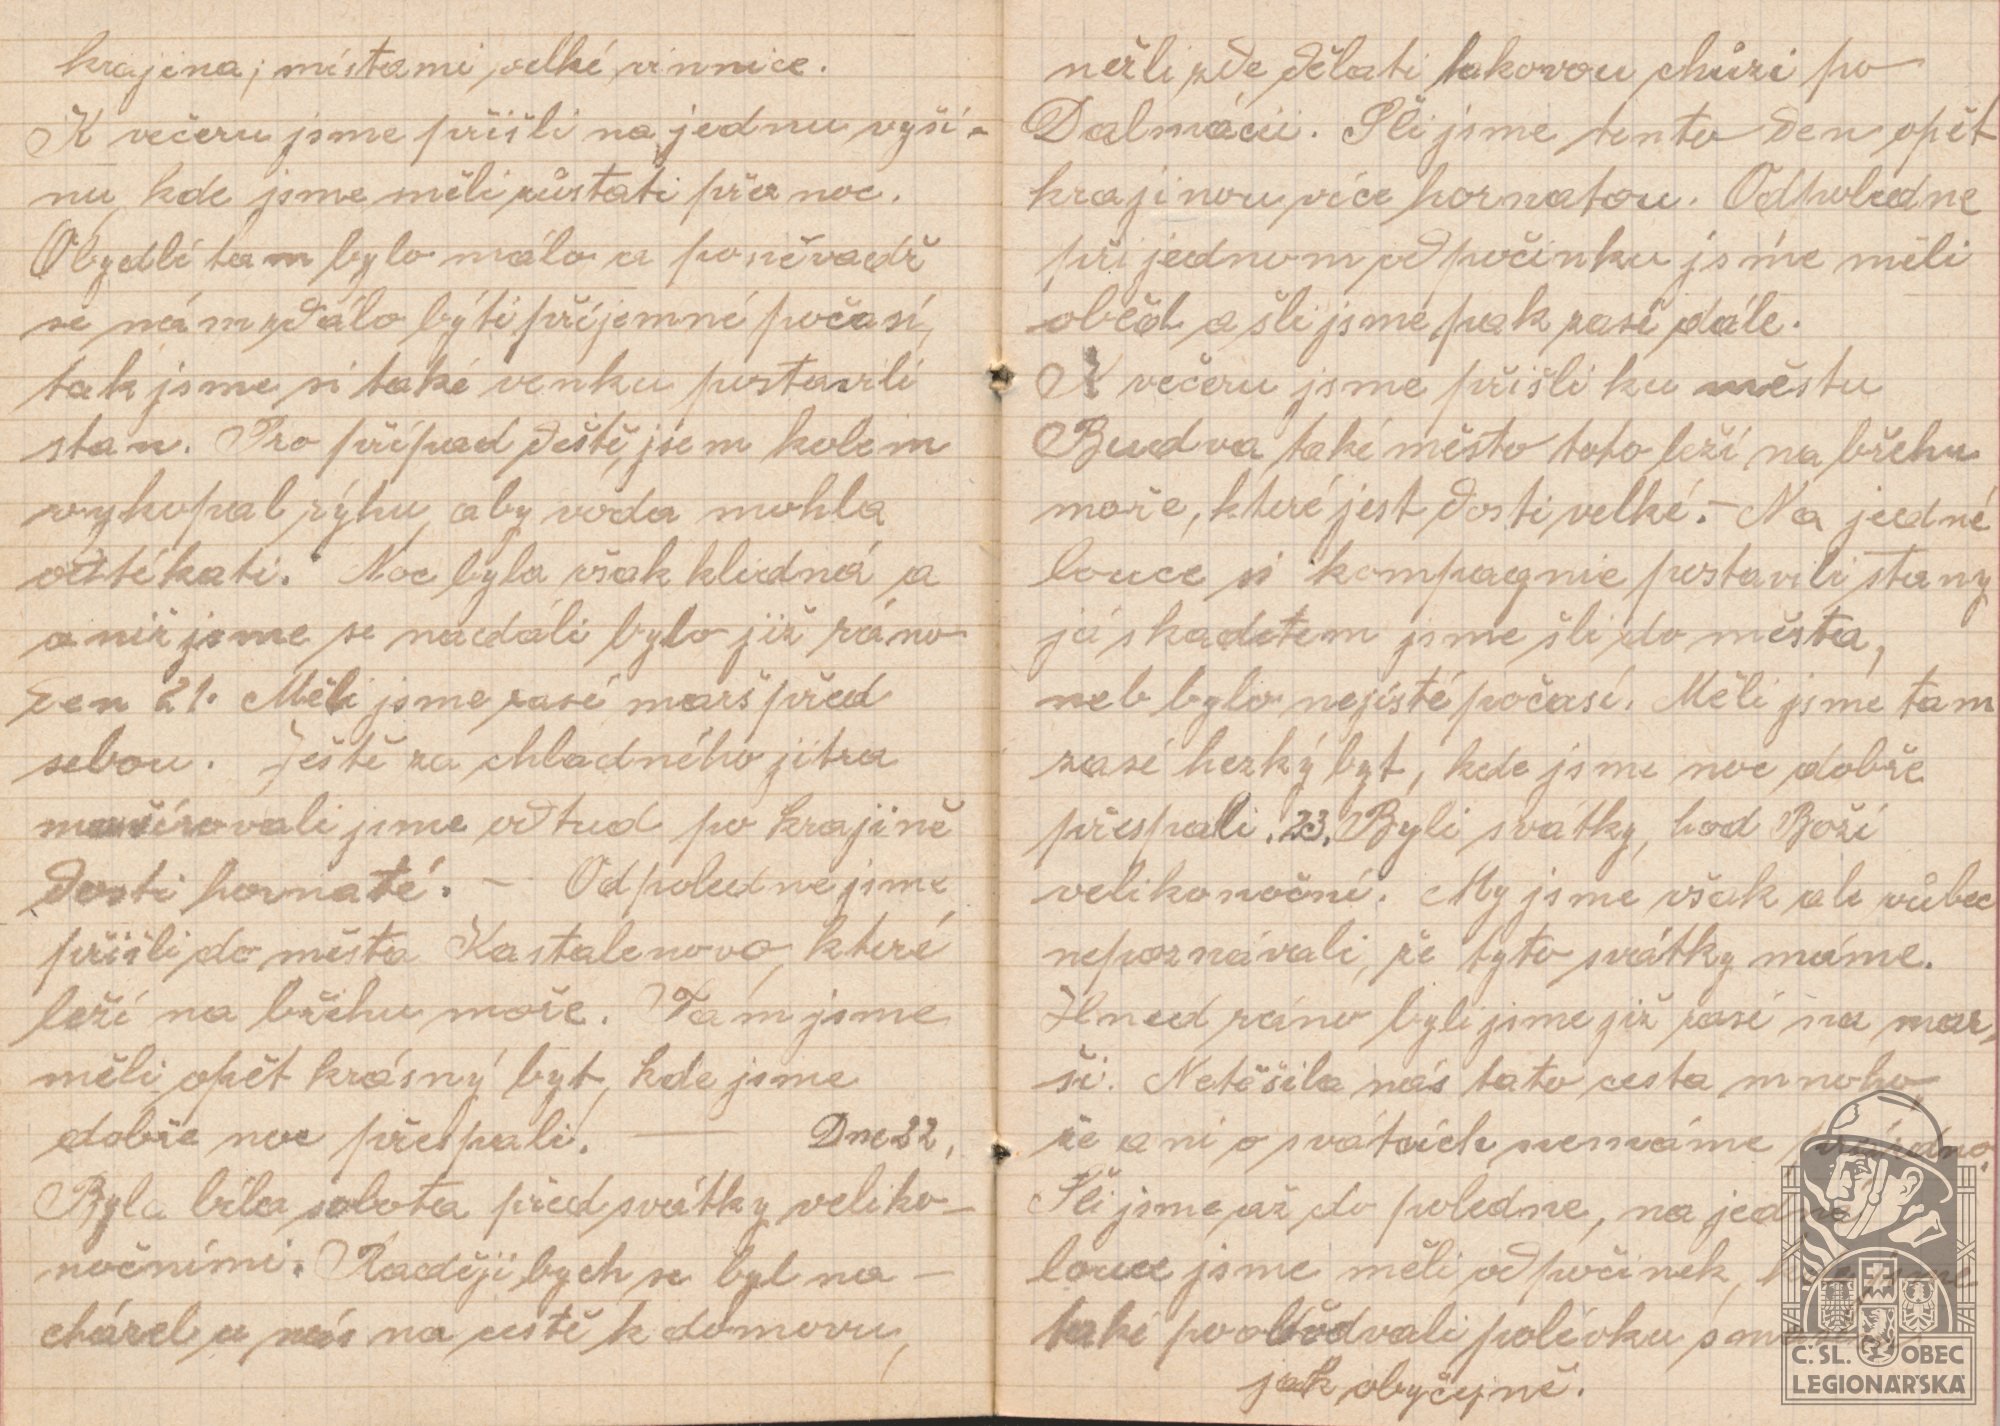 krajina, místami velké vinnice.
K večeru jsme přišli na jednu vyši-
nu, kde jsme měli zůstati přez noc.
Obydlí tam bylo málo a poněvadž
se nám zdálo býti příjemné počasí,
tak jsme si také venku postavili
stan. Pro případ deště, jsem kolem
vykopal rýhu, aby voda mohla
odtékati. Noc byla však klidná a
a niž jsme se nadáli bylo již ráno
Den 21. Měli jsme zasé marš před
sebou. Ještě za chladného jitra
mašírovali jsme od tud po krajině
dosti hornaté. — Odpoledne jsme
přišli do města Kastalenovo, které
leží na břehu moře. Tam jsme
měli opět krásný byt, kde jsme
dobře noc přespali. — Dne 22,
Byla bíla sobota před svátky veliko-
nočními. Raději bych se byl na-
cházel u nás na cestě k domovu,
nežli zde dělati takovou chůzi po
Dalmácii. Šli jsme tento den opět
krajinou více hornatou. Odpoledne
při jednom odpočinku jsme měli
oběd a šli jsme pak zasé dále.
K večeru jsme přišli ku městu
Budva také město toto leží na břehu
moře, které jest dosti velké. – Na jedné
louce si kompagnie postavili stany
já s kadetem jsme šli do města,
neb bylo nejisté počasí. Měli jsme tam
zasé hezký byt, kde jsme noc dobře
přespali. 23. Byli svátky, hod Boží
velikonoční. My jsme však ale vůbec
nepoznávali, že tyto svátky máme.
Hned ráno byli jsme již zasé na mar-
ši. Netěšila nás tato cesta mnoho,
že ani o svátcích nemáme prázdno.
Šli jsme až do poledne, na jedné
louce jsme měli odpočinek, kde jsme
také poobědvali polévku s
jak obyčejně.